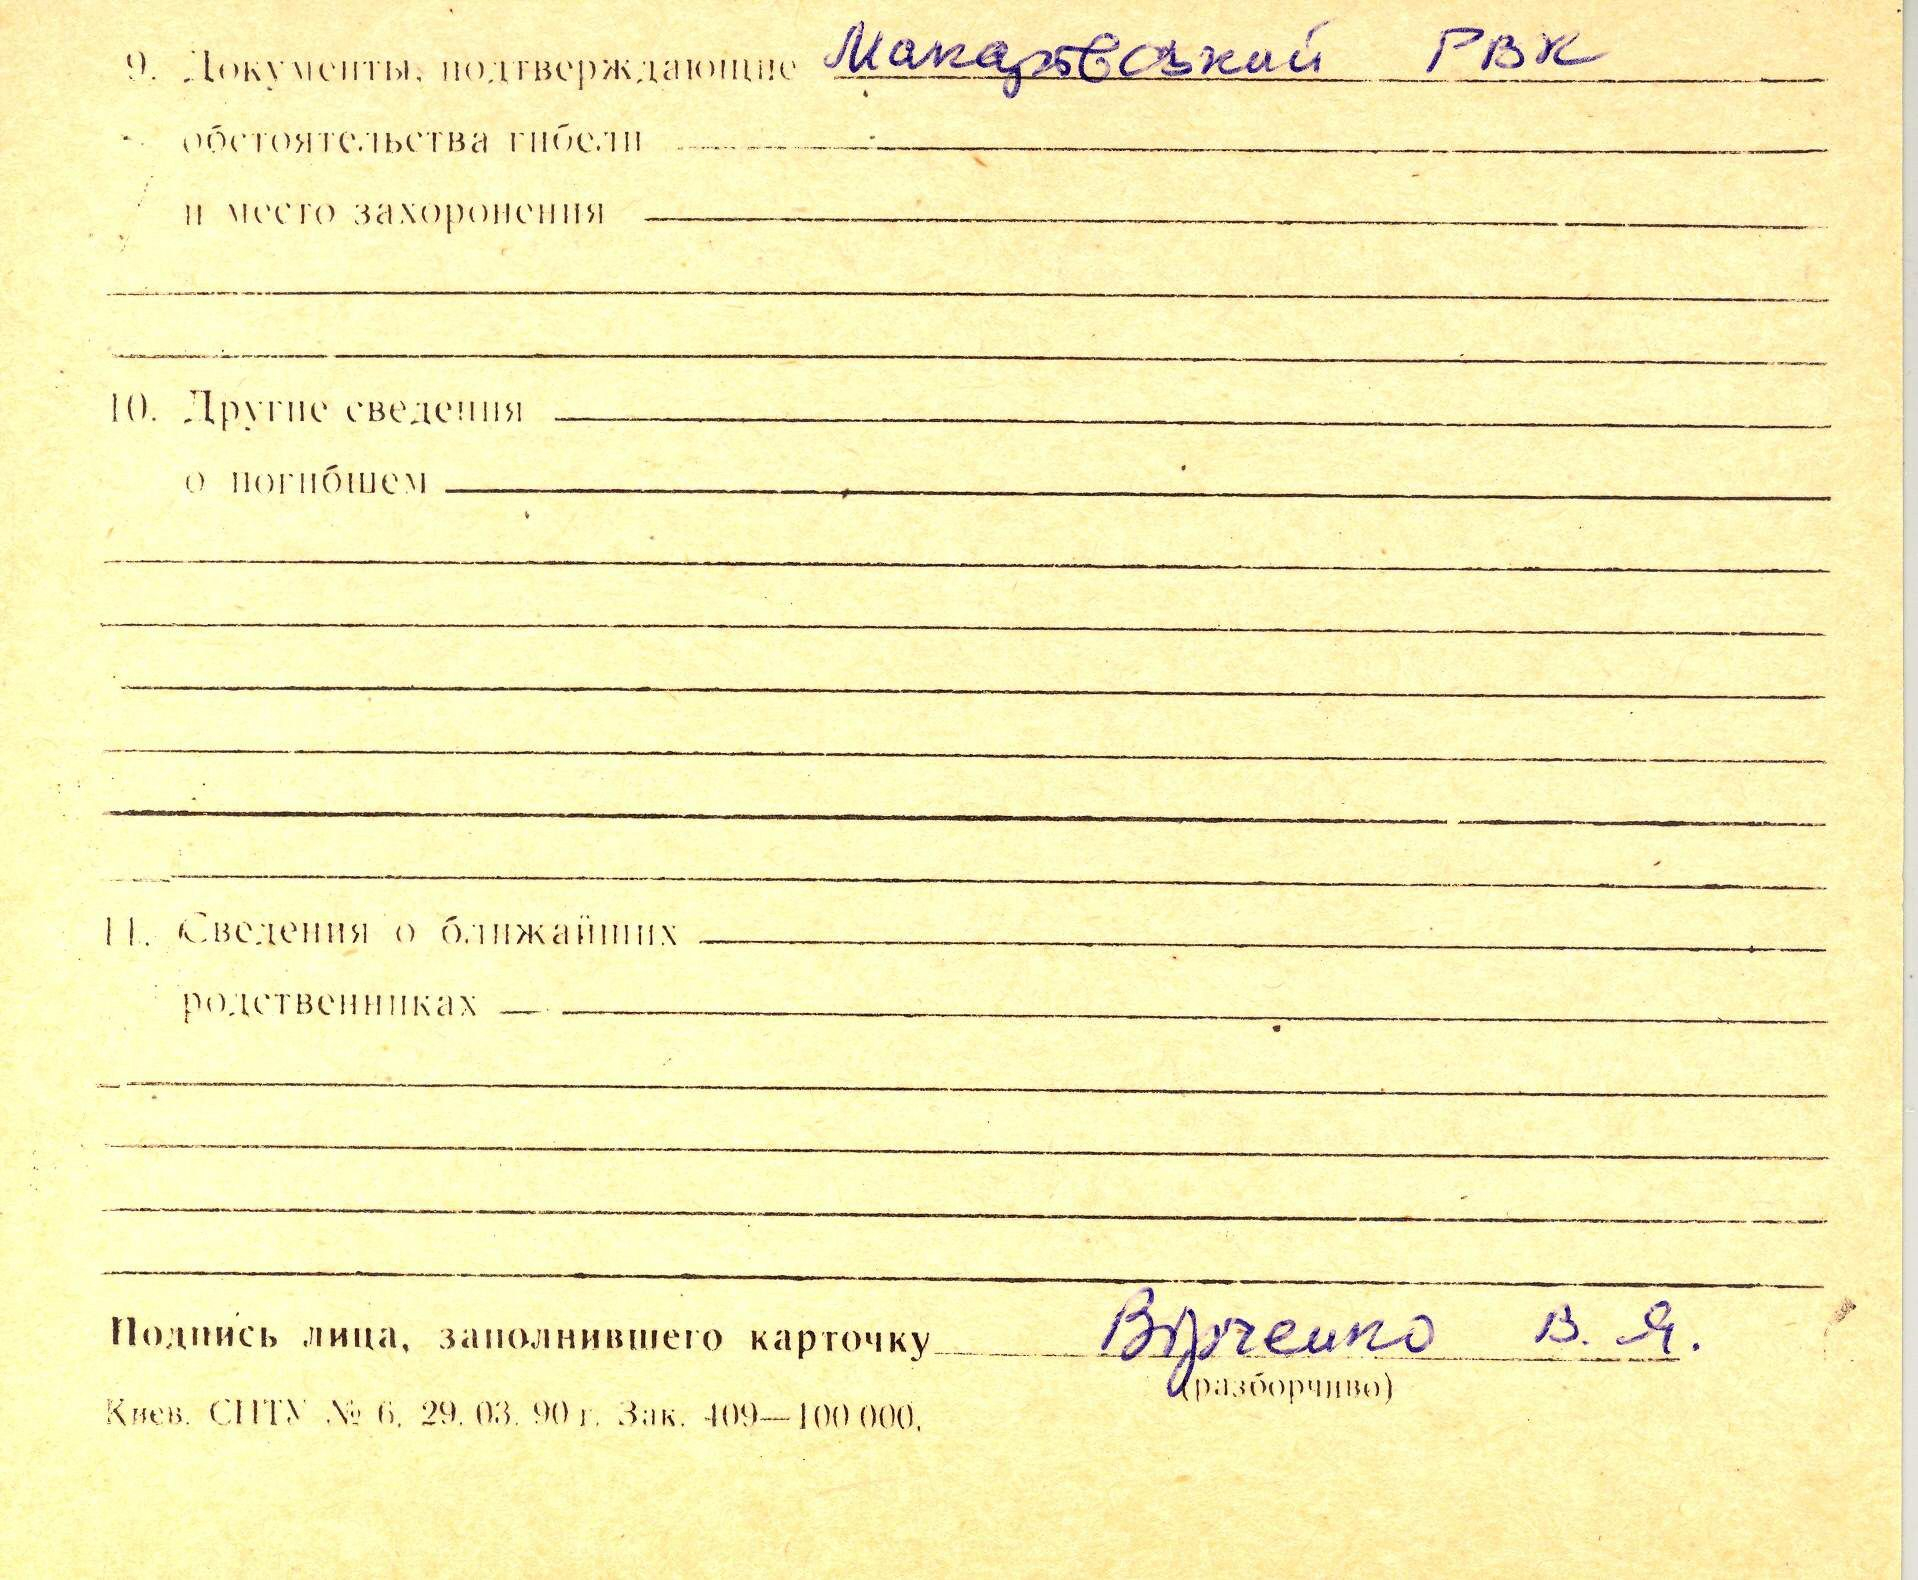 9. Документы, подтверждающие Макаровский РВК
обстоятельства гибели
и место захоронения
10. Другие сведения
о погибшем
11. Сведения о ближайших
родственниках
Подпись лица, заполнившего карточку В. Я.
(разборчиво)
Киев. СПТУ № 6. 29. 03. 90 г. Зак. 409—100 000.